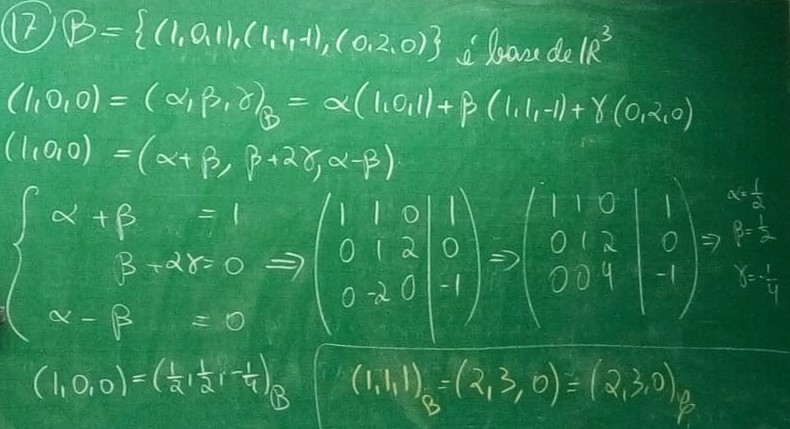 17 B = {(1,0,1),(1,1,-1),(0,2,0)} é base de ℝ³
(1,0,0) = (α,β,γ)_B = α(1,0,1)+β(1,1,-1)+γ(0,2,0)
(1,0,0) = (α+β, β+2γ, α-β).
{ α + β = 1
β + 2γ = 0
α - β = 0
⇒ ( 1 1 0 | 1
0 1 2 | 0
0 -2 0 | -1 )
⇒ ( 1 1 0 | 1
0 1 2 | 0
0 0 4 | -1 )
⇒ α = 1/2
β = 1/2
γ = -1/4
(1,0,0) = (1/2, 1/2, -1/4)_B
(1,1,1)_B = (2,3,0) = (2,3,0)